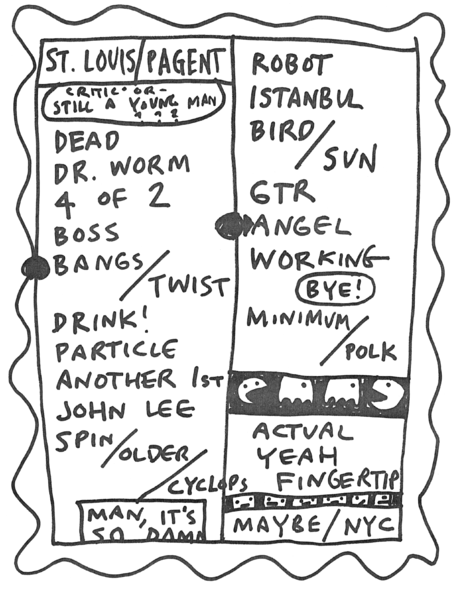 ST. LOUIS/PAGENT
CRITIC-OR-
STILL A YOUNG MAN
? ? ?
DEAD
DR. WORM
4 OF 2
BOSS
BANGS/TWIST
DRINK!
PARTICLE
ANOTHER 1ST
JOHN LEE
SPIN/OLDER/CYCLOPS
MAN, IT'S
SO DAMN
ROBOT
ISTANBUL
BIRD/SUN
GTR
ANGEL
WORKING
BYE!
MINIMUM/POLK
ACTUAL
YEAH
FINGERTIP
MAYBE/NYC